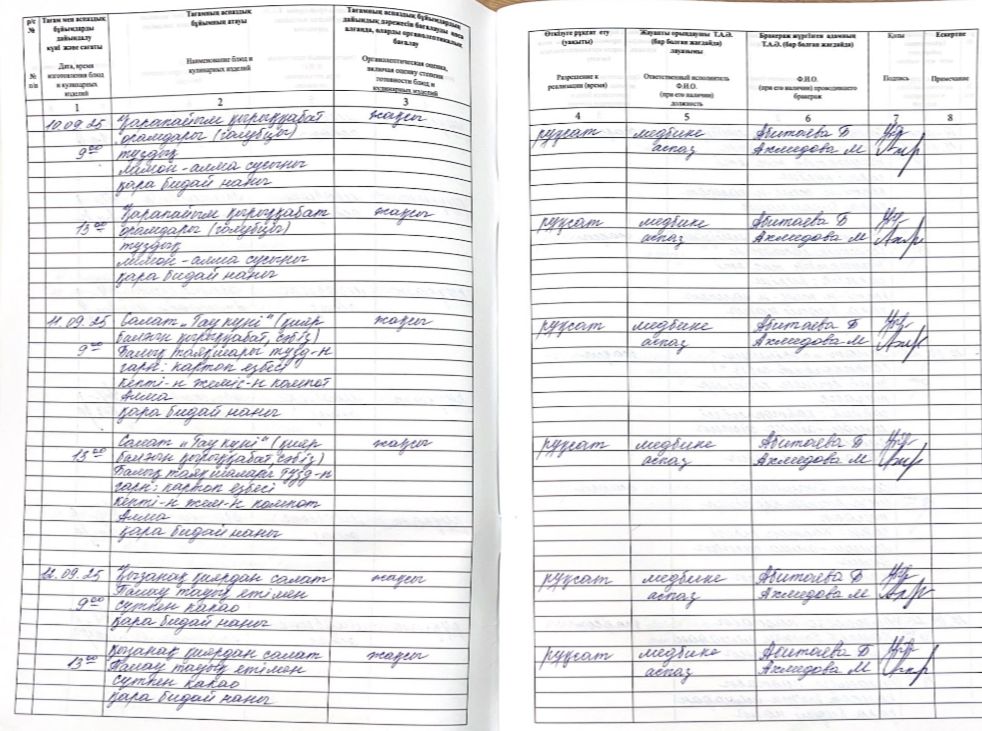 р/с №
Тағам мен аспаздық бұйымдарды дайындалу күні және сағаты
Тағамның аспаздық бұйымның атауы
Тағамның аспаздық бұйымдардың дайындық дәрежесін бағалауды қоса алғанда, оларды органолептикалық бағалау
№ п/п
Дата, время изготовления блюд и кулинарных изделий
Наименование блюд и кулинарных изделий
Органолептическая оценка, включая оценку степени готовности блюд и кулинарных изделий
1 2 3
10.09.25 Қарапайым қырыққабат жақсы
орамдары (голубцы)
9 00 тұздық
лимон-алма сусыны
қара бидай наны
Қарапайым қырыққабат жақсы
13 00 орамдары (голубцы)
тұздық
лимон-алма сусыны
қара бидай наны
11.09.25 Салат „Тау күні" (қияр жақсы
балғын қырыққабат, сәбіз)
9 00 Балық тұзд-н
гарн: картоп езбесі
кепті-н жеміс-н компот
Алма
қара бидай наны
Салат „Тау күні" (қияр жақсы
13 00 балғын қырыққабат, сәбіз)
Балық тұзд-н
гарн: картоп езбесі
кепті-н жем-н компот
Алма
қара бидай наны
12.09.25 Қызанақ қиярдан салат жақсы
Палау тауық етімен
9 00 сүтпен какао
қара бидай наны
Қызанақ қиярдан салат жақсы
13 00 Палау тауық етімен
сүтпен какао
қара бидай наны
Өткізуге рұқсат ету (уақыты)
Жауапты орындаушы Т.А.Ә. (бар болған жағдайда) лауазымы
Бракераж жүргізген адамның Т.А.Ә. (бар болған жағдайда)
Қолы
Ескертпе
Разрешение к реализации (время)
Ответственный исполнитель Ф.И.О. (при его наличии) должность
Ф.И.О. (при его наличии) проводившего бракераж
Подпись
Примечание
4 5 6 7 8
рұқсат медбике Абитаева Б
аспаз Ахмедова М
рұқсат медбике Абитаева Б
аспаз Ахмедова М
рұқсат медбике Абитаева Б
аспаз Ахмедова М
рұқсат медбике Абитаева Б
аспаз Ахмедова М
рұқсат медбике Абитаева Б
аспаз Ахмедова М
рұқсат медбике Абитаева Б
аспаз Ахмедова М